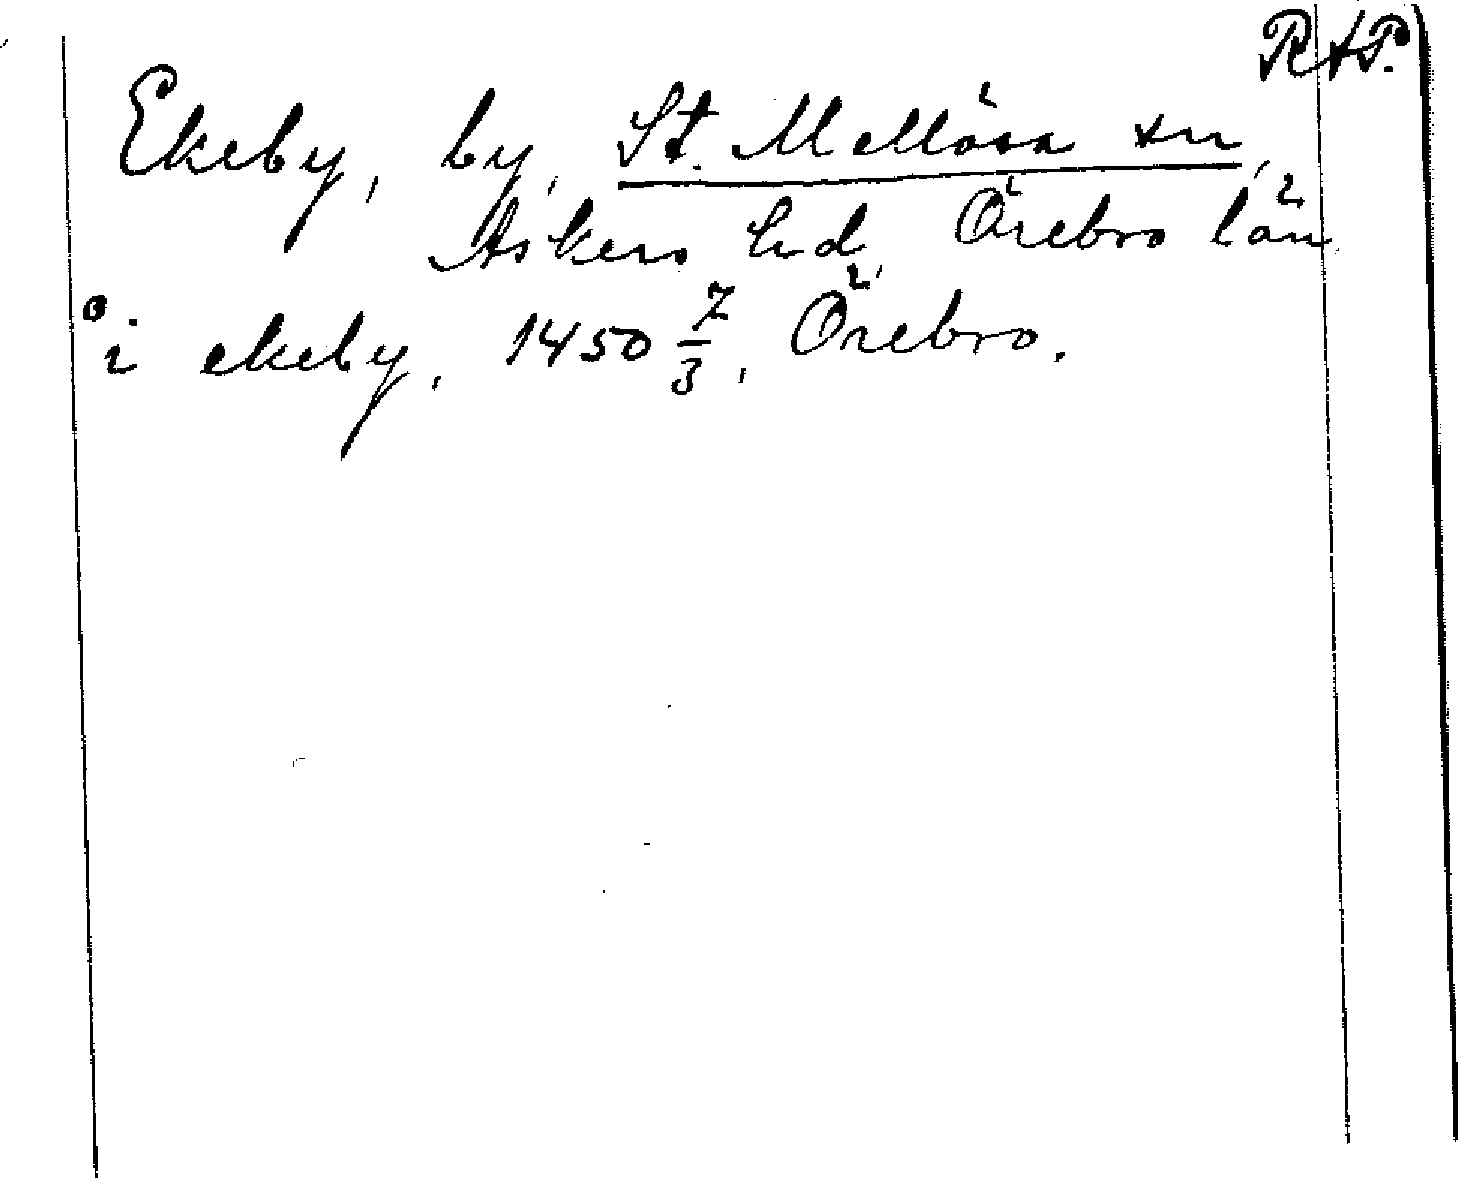 RAP.
Ekeby, by, St. Mellösa sn,
Askers hd, Örebro län.
i ekeby, 1450 7/3, Örebro.